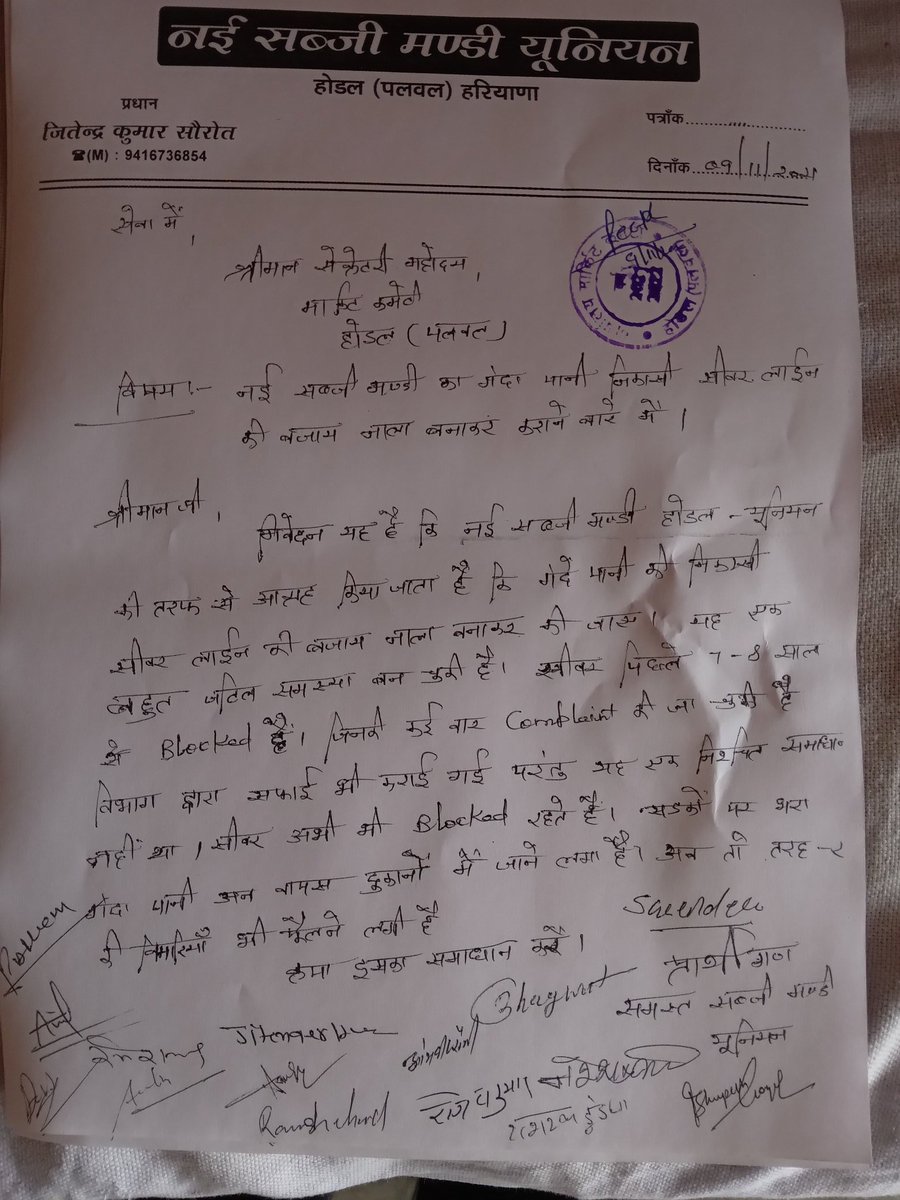 नई सब्जी मण्डी यूनियन
होडल (पलवल) हरियाणा
प्रधान
जितेन्द्र कुमार सौरोत
☎(M) : 9416736854
पत्राँक
दिनाँक 09/11/2021
सेवा में,
श्रीमान सेक्रेटरी महोदय,
मार्किट कमेटी
होडल (पलवल)
विषय:- नई सब्जी मण्डी का गंदा पानी निकासी सीवर लाईन
की बजाय नाला बनाकर कराने बारे में।
श्रीमान जी,
निवेदन यह है कि नई सब्जी मण्डी होडल - यूनियन
की तरफ से आग्रह किया जाता है कि गंदें पानी की निकासी
सीवर लाईन की बजाय नाला बनाकर की जाए। यह एक
बहुत जटिल समस्या बन चुकी है। सीवर पिछले 7-8 साल
से Blocked हैं। जिनकी कई बार Complaint की जा चुकी है
विभाग द्वारा सफाई भी कराई गई परंतु यह एक निश्चित समाधान
नहीं था। सीवर अभी भी Blocked रहते हैं। सडकों पर भरा
गंदा पानी अब वापस दुकानों में जाने लगा है। अब तो तरह-२
की बिमारियाँ भी फैलने लगी है
कृपा इसका समाधान करें।
प्रार्थी गण
समस्त सब्जी मण्डी
यूनियन
Bhagwat